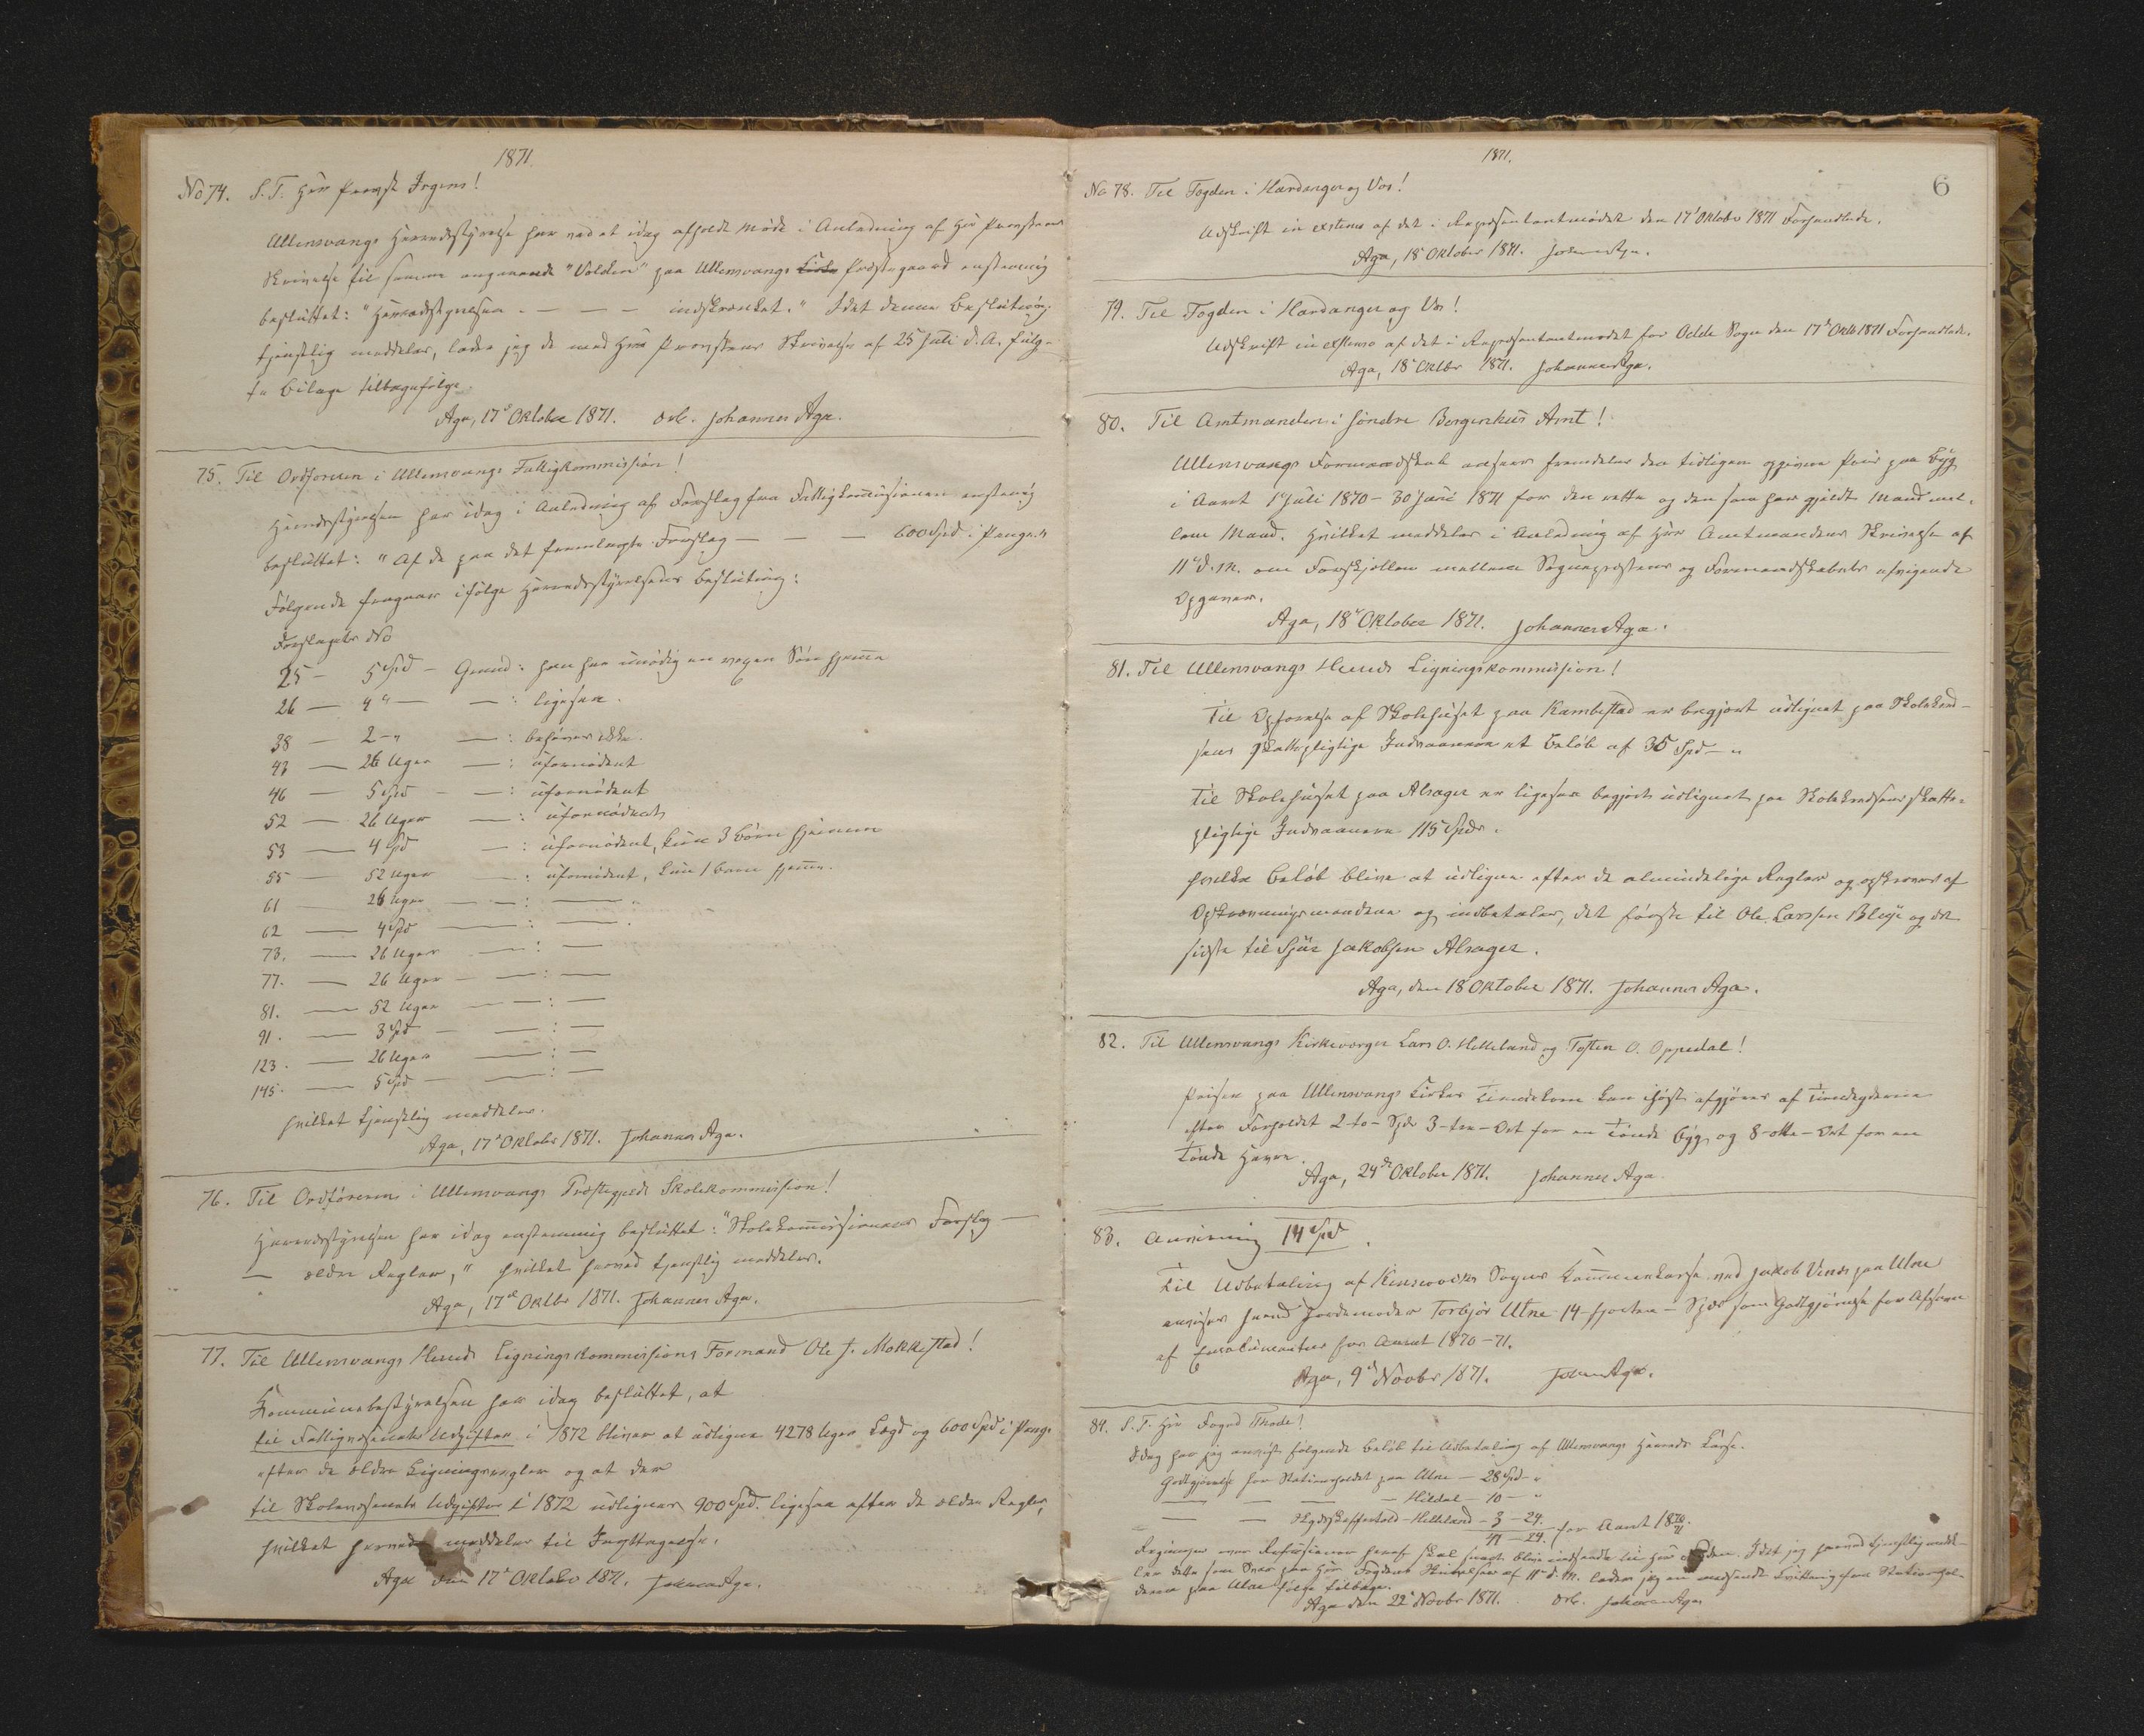 1871.
No 74. S. T. Herr Provst Irgens!
Ullensvangs Herredsstyrelse har ved et idag afholdt Møde i Anledning af Hr Provstens
Skrivelse til samme angaaende "Volden" paa Ullensvangs Kirke Præstegaard enstemmig
besluttet: "Herredsstyrelsen - — — - indskrænket." Idet denne Beslutning
tjenstlig meddeles, lader jeg de med Hr Provstens Skrivelse af 25 Juli d. A. fulg-
te Bilage tilbagefølge.
Aga, 17de Oktober 1871. Ordf. Johannes Aga.
75. Til Ordføreren i Ullensvangs Fattigkommission!
Herredsstyrelsen har idag i Anledning af Forslag fra Fattigkommissionen enstemmig
besluttet: "Af de paa det fremlagte Forslag — — — 600 Spd i Penge."
Følgende fragaar ifølge Herredsstyrelsens Beslutning:
Forslagets No
25 — 5 Spd — Grund: han har unødig en voxen Søn hjemme
26 — 4 " — — : ligesaa.
38 — 2 - " — : behøves ikke.
43 — 26 Uger — : ufornødent
46 — 5 Spd — : ufornødent
52 — 26 Uger — : ufornødent
53 — 4 Spd — : ufornødent, kun 3 Børn hjemme
55 — 52 Uger — : ufornødent, kun 1 Barn hjemme.
61 — 26 Uger — — : — "
62 — 4 Spd — : — .
73. — 26 Uger — : —
77. — 26 Uger — — : —
81. — 52 Uger — — : —
91. — 3 Spd — — : —
123. — 26 Uger — : —
145. — 5 Spd — — : —
hvilket tjenstlig meddeles.
Aga, 17de Oktober 1871. Johannes Aga.
76. Til Ordføreren i Ullensvangs Præstegjelds Skolekommission!
Herredsstyrelsen har idag enstemmig besluttet: "Skolekommissionens Forslag —
— ældre Regler," hvilket herved tjenstlig meddeles.
Aga, 17de Oktbr 1871. Johannes Aga.
77. Til Ullensvangs Herreds Ligningskommissions Formand Ole J. Mokkestad!
Kommunebestyrelsen har idag besluttet, at
til Fattigvæsenets Udgifter i 1872 bliver at udligne 4278 Uger Lægd og 600 Spd i Penge
efter de ældre Ligningsregler og at der
til Skolevæsenets Udgifter i 1872 udlignes 900 Spd. ligesaa efter de ældre Regler,
hvilket herved meddeles til Iagttagelse.
Aga den 17de Oktober 1871. Johannes Aga.
1871.
6
No 78. Til Fogden i Hardanger og Vos!
Udskrift in extenso af det i Repræsentantmødet den 17de Oktober 1871 Forhandlede.
Aga, 18 Oktober 1871. Johannes Aga.
79. Til Fogden i Hardanger og Vos!
Udskrift in extenso af det i Repræsentantmødet for Odda Sogn den 17de Oktb 1871 Forhandlede.
Aga, 18 Oktbr 1871. Johannes Aga.
80. Til Amtmanden i Søndre Bergenhus Amt!
Ullensvangs Formandskab anser fremdeles den tidligere opgivne Pris paa Byg
i Aaret 1 Juli 1870 - 30 Juni 1871 for den rette og den som har gjældt Mand mel-
lem Mand. Hvilket meddeles i Anledning af Herr Amtmandens Skrivelse af
11te d. M. om Forskjellen mellem Sognepræstens og Formandskabets afvigende
Opgaver.
Aga, 18de Oktober 1871. Johannes Aga.
81. Til Ullensvangs Herreds Ligningskommission!
Til Opførelse af Skolehuset paa Kambestad er begjært udlignet paa Skolekred-
sens skattepligtige Indvaanere et Beløb af 35 Spd - "
Til Skolehuset paa Alsager er ligesaa begjært udlignet paa Skolekredsens skatte-
pligtige Indvaanere 115 Spdr.
Hvilke Beløb bliver at udligne efter de almindelige Regler og opkræves af
Opkrævningsmændene og indbetales, det første til Ole Larssen Bleie og det
sidste til Sjur Jakobsen Alsager.
Aga, den 18 Oktober 1871. Johannes Aga.
82. Til Ullensvangs Kirkeværger Lars O. Helleland og Tosten O. Oppedal!
Prisen paa Ullensvangs Kirkes Tiendekorn kan ihøst afgjøres af Tiendeyderne
efter Forholdet 2-to- Spdr 3-tre-Ort for en Tønde Byg og 8-otte-Ort for en
Tønde Havre.
Aga, 24de Oktober 1871. Johannes Aga
83. Anvisning 14 Spd.
Til Udbetaling af Kinserviks Sogns Kommunekasse ved Jakob Vines paa Utne
anvises herved Jordemoder Torbjør Utne 14-fjorten- Spdr som Godtgjørelse for Afsavn
af Emolumenter for Aaret 1870-71.
Aga, 9de Novbr 1871. Johannes Aga.
84. S. T. Hr Foged Thode!
Idag har jeg anvist følgende Beløb til Udbetaling af Ullensvangs Herreds Kasse.
Godtgjørelse for Stationsholdet paa Utne — 28 Spd - "
— — — - Hildal — 10 — "
— — Skydsskafferhold - Helleland - 3 - 24.
41 - 24. for Aaret 1870/71.
Regninger over Refusioner heraf skal snart blive indsendt til Hr Fogden. Idet jeg herved tjenstlig medde-
ler dette som Svar paa Hr Fogdens Skrivelse af 11te d. M. lader jeg en medsendt Kvittering fra Stationshol-
deren paa Utne følge tilbage.
Aga den 22de Novbr 1871. Ordf. Johannes Aga